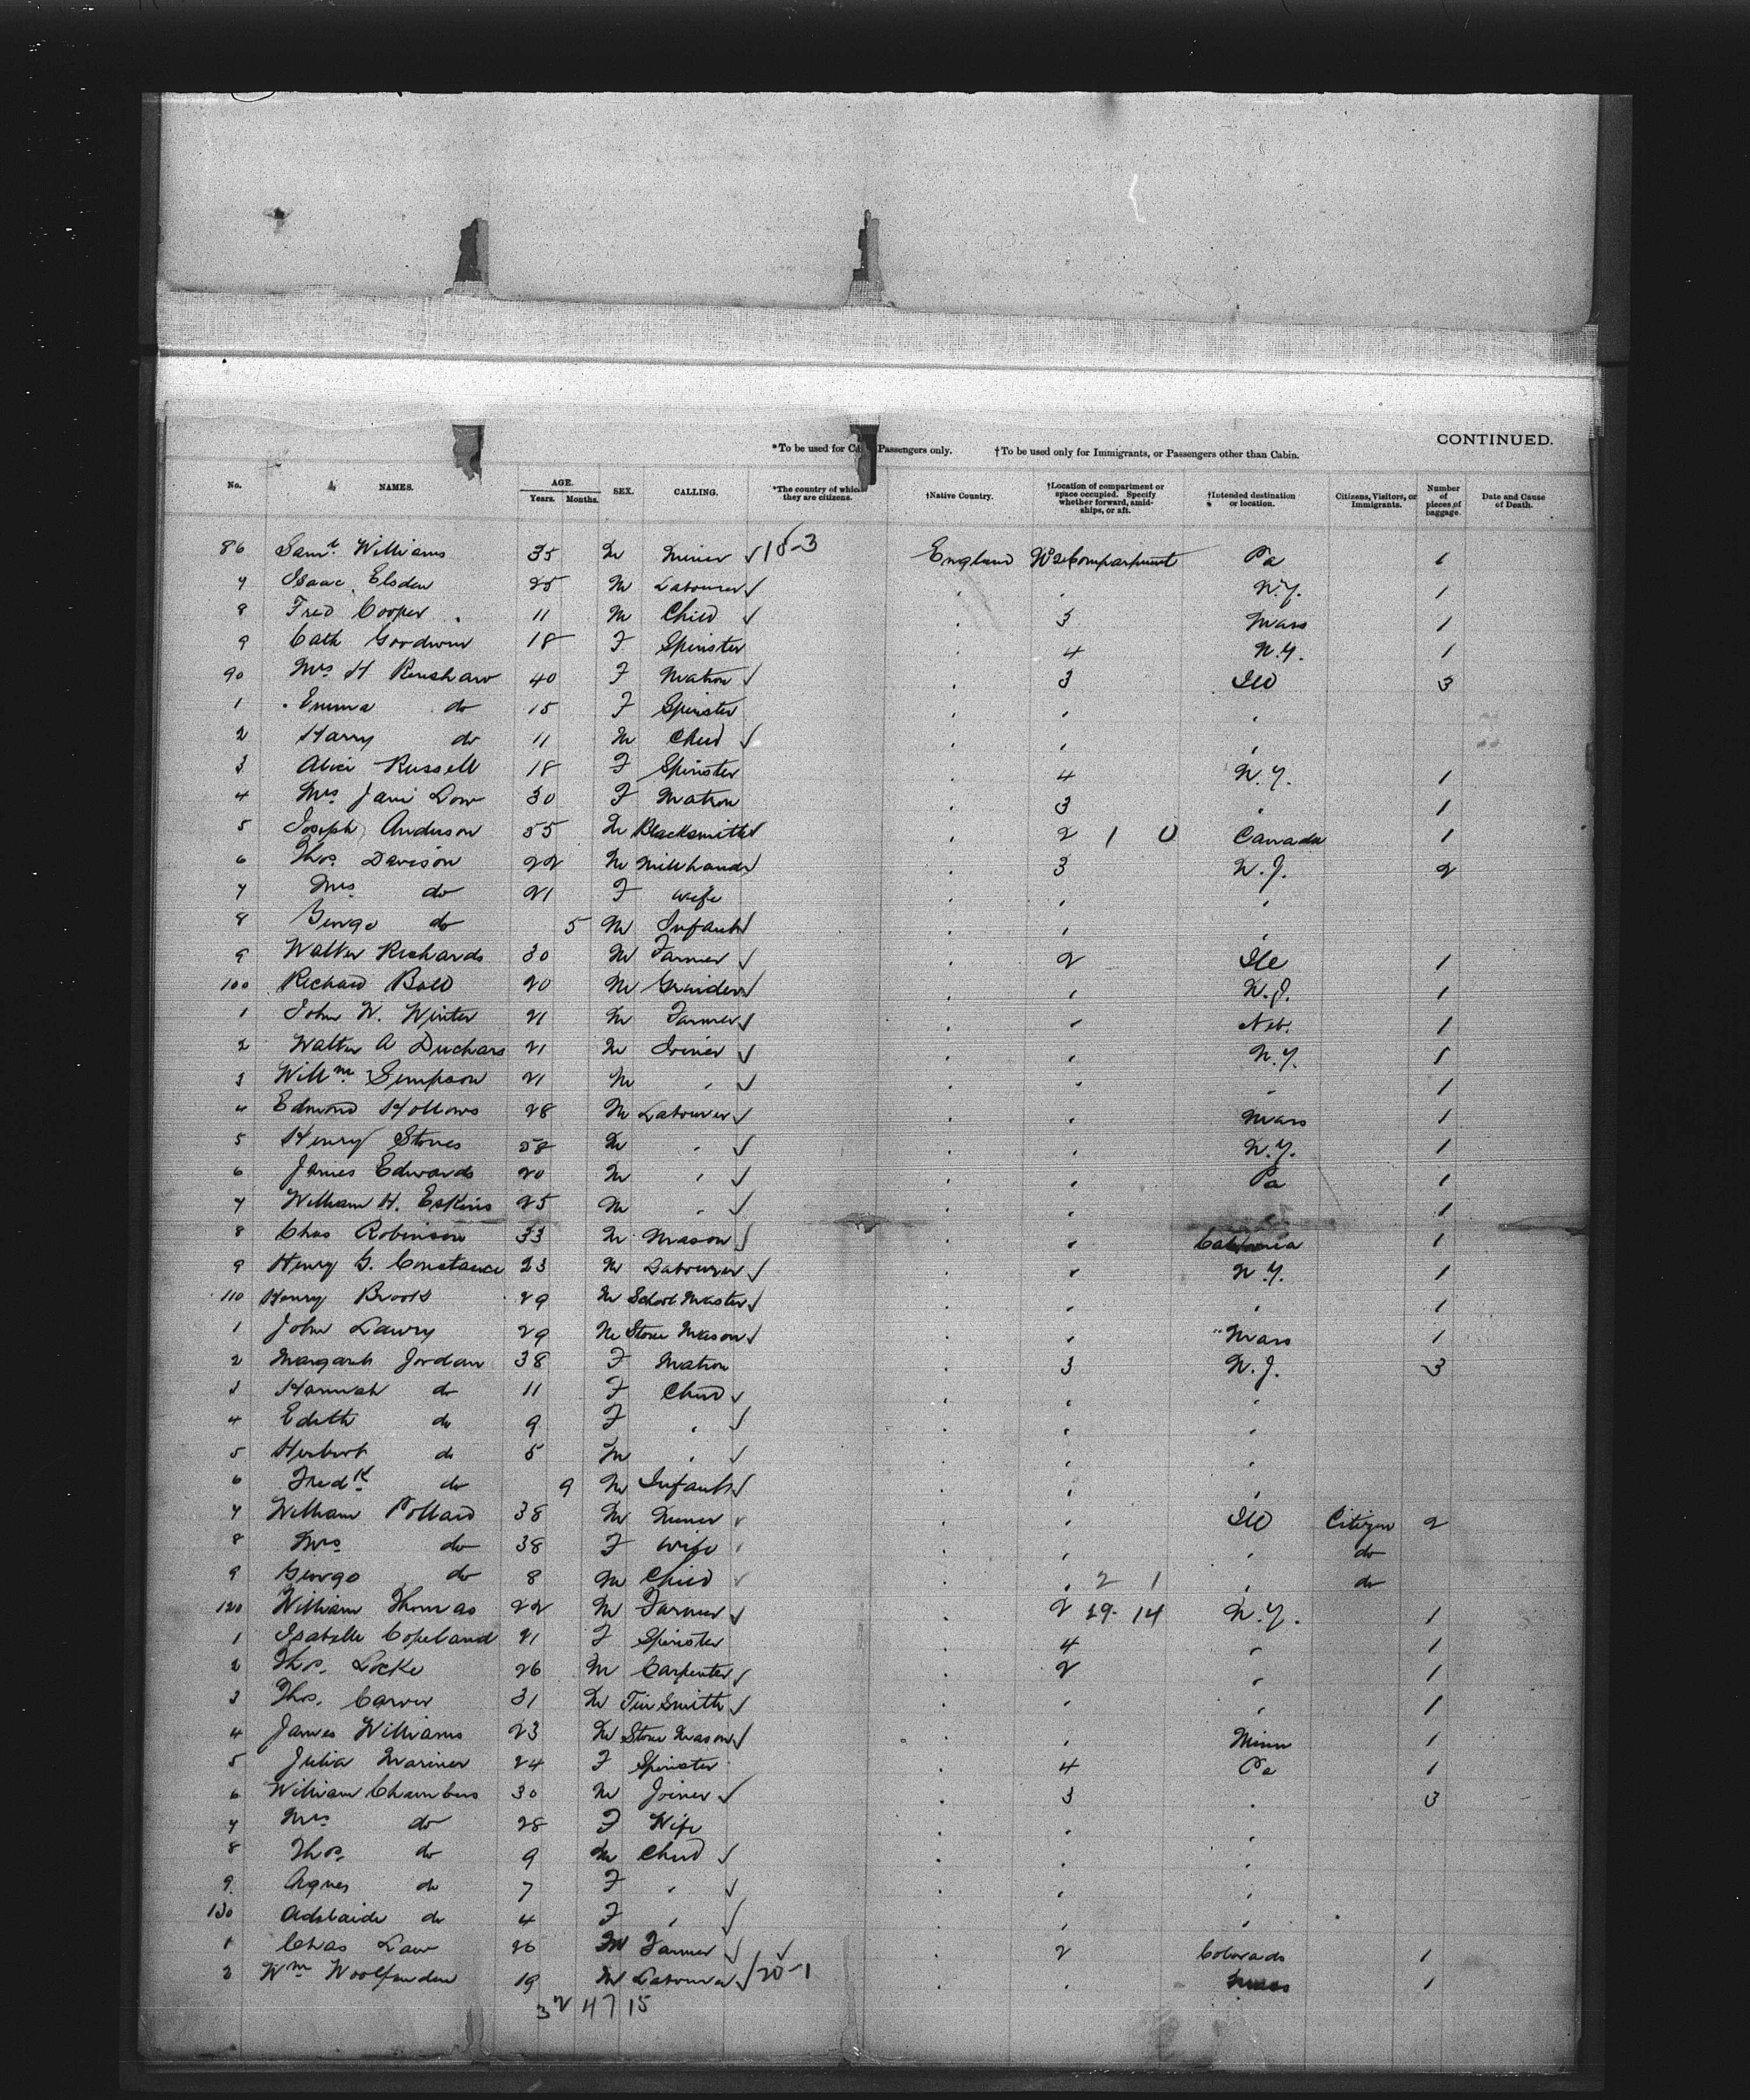 CONTINUED.
*To be used for Ca Passengers only. †To be used only for Immigrants, or Passengers other than Cabin.
No. NAMES. AGE. Years. Months. SEX. CALLING. *The country of which they are citizens. †Native Country. †Location of compartment or space occupied. Specify whether forward, amidships, or aft. †Intended destination or location. Citizens, Visitors, or Immigrants. Number of pieces of baggage. Date and Cause of Death.
86 Saml. Williams 35 M Miner √ 18-3 England No 2 Compartment Pa 1
7 Isaac Elsden 25 M Labourer √ " " N.Y. 1
8 Fred Cooper 11 M Child √ " 3 Mass 1
9 Cath Goodwin 18 F Spinster " 4 N.Y. 1
90 Mrs H Renshaw 40 F Matron √ " 3 Ill 3
1 Emma do 15 F Spinster " " "
2 Harry do 11 M Child √ " " "
3 Alice Russell 18 F Spinster " 4 N.Y. 1
4 Mrs Jane Low 30 F Matron " 3 " 1
5 Joseph Anderson 55 M Blacksmith √ " 2 1 0 Canada 1
6 Thos. Davison 22 M Millhand √ " 3 N.J. 2
7 Mrs do 21 F Wife " " "
8 George do 5 M Infant √ " " "
9 Walter Richards 30 M Farmer √ " 2 Ill 1
100 Richard Ball 20 M Grinder √ " " N.J. 1
1 John W. Winter 21 M Farmer √ " " Neb. 1
2 Walter A Duchars 21 M Joiner √ " " N.Y. 1
3 Willm Simpson 21 M " √ " " " 1
4 Edmond Hollows 28 M Labourer √ " " Mass 1
5 Henry Stones 58 M " √ " " N.Y. 1
6 James Edwards 20 M " √ " " Pa 1
7 William H. Eskins 25 M " √ " " " 1
8 Chas Robinson 33 M Mason √ " " California 1
9 Henry G. Constance 23 M Labourer √ " " N.Y. 1
110 Henry Brooks 29 M School Master √ " " " 1
1 John Lawry 29 M Stone Mason √ " " Mass 1
2 Margaret Jordan 38 F Matron " 3 N.J. 3
3 Hannah do 11 F Child √ " " "
4 Edith do 9 F " √ " " "
5 Herbert do 5 M " √ " " "
6 Fredk do 9 M Infant √ " " "
7 William Pollard 38 M Miner √ " " Ill Citizen 2
8 Mrs do 38 F Wife " " " do
9 George do 8 M Child √ " " 2 1 " do
120 William Thomas 22 M Farmer √ " 2 29-14 N.Y. 1
1 Isabella Copeland 21 F Spinster " 4 " 1
2 Thos. Locke 26 M Carpenter √ " 2 " 1
3 Thos. Carver 31 M Tin Smith √ " " " 1
4 James Williams 23 M Stone Mason √ " " Minn 1
5 Julia Mariner 24 F Spinster " 4 Pa 1
6 William Chambers 30 M Joiner √ " 3 " 3
7 Mrs do 28 F Wife " " "
8 Thos. do 9 M Child √ " " "
9 Agnes do 7 F " √ " " "
130 Adelaide do 4 F " √ " " "
1 Chas Law 26 M Farmer √ √ " 2 Colorado 1
2 Wm Woolfenden 19 M Labourer √ 20-1 " " Mass 1
32 47 15